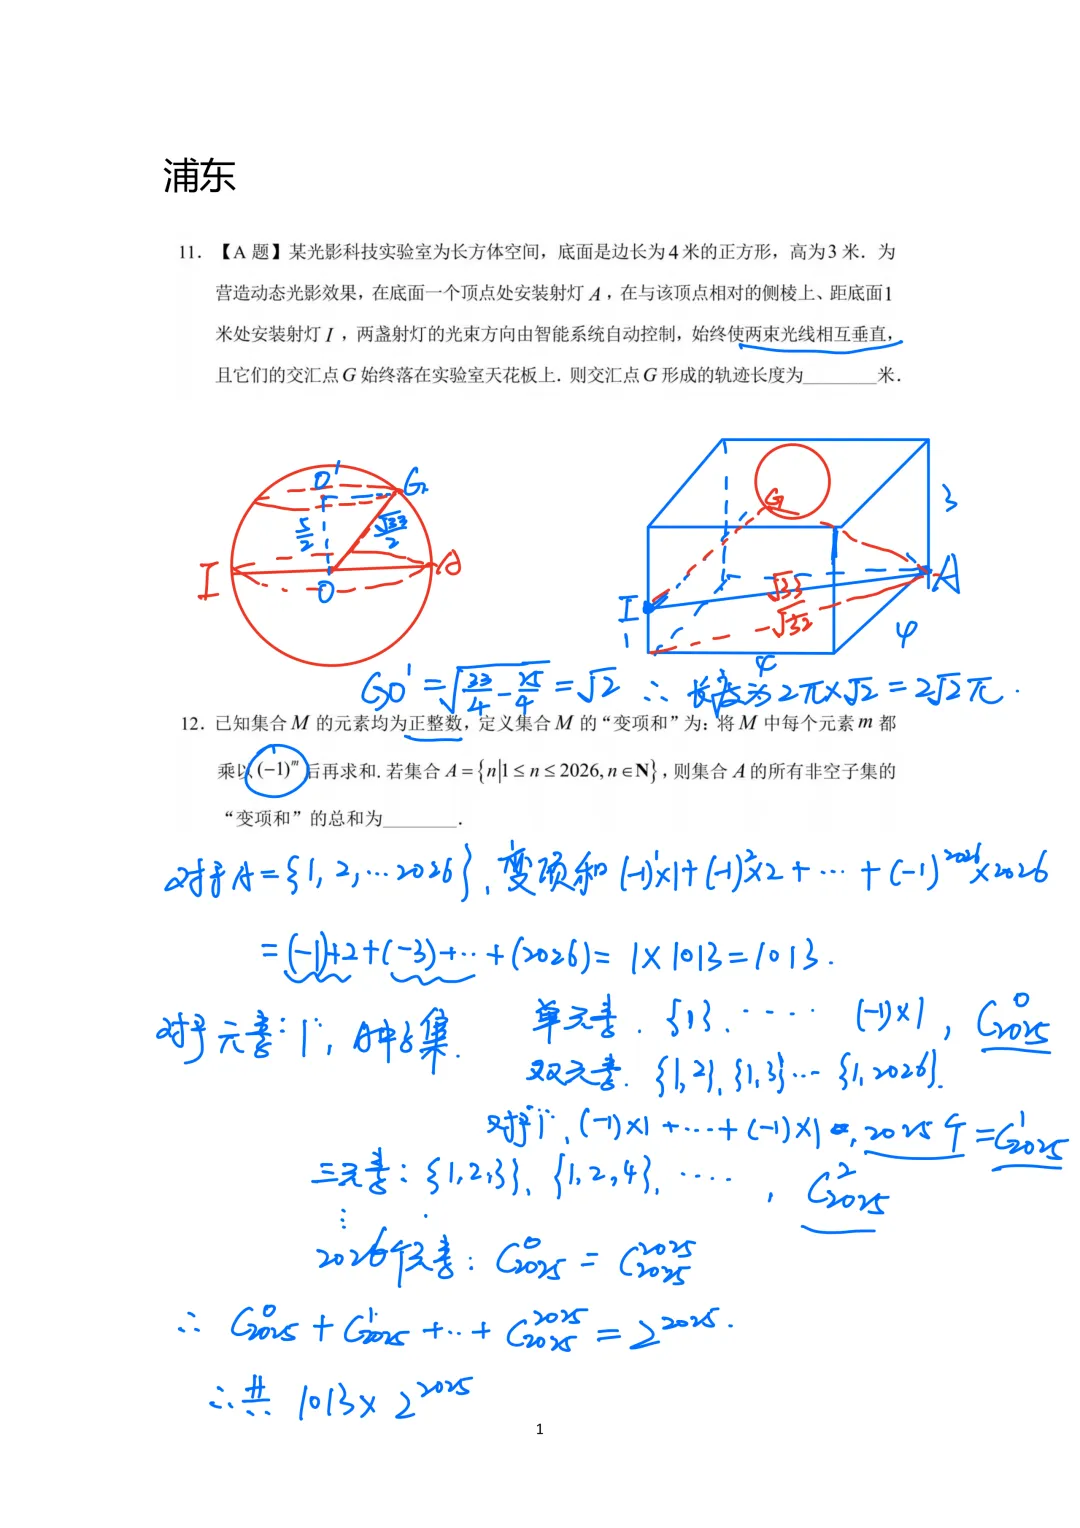 浦东
11. 【A 题】某光影科技实验室为长方体空间，底面是边长为4米的正方形，高为3米．为
营造动态光影效果，在底面一个顶点处安装射灯 A，在与该顶点相对的侧棱上、距底面1
米处安装射灯 I，两盏射灯的光束方向由智能系统自动控制，始终使两束光线相互垂直，
且它们的交汇点 G 始终落在实验室天花板上．则交汇点 G 形成的轨迹长度为________米．
O' G
5/2 √33/2
I A
O
G
3
I √33 A
1 √32 4
4
GO' = √(33/4 - 25/4) = √2 ∴ 长度为 2π×√2 = 2√2π .
12. 已知集合 M 的元素均为正整数，定义集合 M 的“变项和”为：将 M 中每个元素 m 都
乘以 (−1)^m 后再求和. 若集合 A = {n|1 ≤ n ≤ 2026, n ∈ N}，则集合 A 的所有非空子集的
“变项和”的总和为________．
对于A={1, 2, … 2026}, 变项和 (-1)^1×1+(-1)^2×2+ … +(-1)^2026×2026
= (-1)+2+(-3)+…+(2026) = 1×1013 = 1013.
对于元素:“1”, A中子集. 单元素. {1}. ‥‥ (-1)×1, C_2025^0
双元素. {1,2}, {1,3}… {1,2026}.
对于“1”, (-1)×1 + … + (-1)×1 , 2025个 = C_2025^1
三元素: {1,2,3}, {1,2,4}, ‥‥ , C_2025^2
⋮
2026个元素: C_2025^0 = C_2025^2025
∴ C_2025^0 + C_2025^1 + … + C_2025^2025 = 2^2025.
∴ 共 1013×2^2025
1